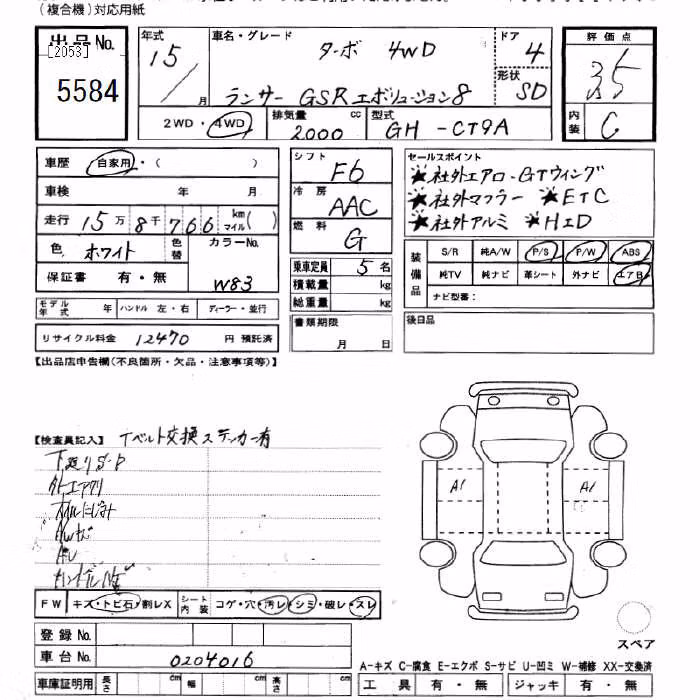 (複合機)対応用紙
出品No. [2053] 5584
年式 15/月
車名・グレード ターボ 4WD
ランサー GSRエボリューション8
ドア 4
形状 SD
評価点 3.5
内装 C
2WD・4WD
排気量 2000 cc
型式 GH-CT9A
車歴 自家用・( )
車検 年 月
走行 15万8千766 km マイル( )
色 ホワイト 色替 カラーNo. W83
保証書 有・無
シフト F6
冷房 AAC
燃料 G
乗車定員 5名
積載量 kg
総重量 kg
書類期限 月 日
セールスポイント
★社外エアロ・GTウィング
★社外マフラー ★ETC
★社外アルミ ★HID
装備品 S/R 純A/W P/S P/W ABS
純TV 純ナビ 革シート 外ナビ エアB
ナビ型番:
後日品
モデル年式 年 ハンドル 左・右 ディーラー・並行
リサイクル料金 12470 円 預託済
【出品店申告欄(不良箇所・欠品・注意事項等)】
【検査員記入】 Tベルト交換ステッカー有
下廻りS-P
オイルにじみ
AWキズ
ハンドルスレ
A1 A1
FW キズ・トビ石・割レX シート内装 コゲ・穴・汚レ・シミ・破レ・スレ
登録No.
車台No. 0204016
車庫証明用 長さ cm 幅 cm 高さ cm
スペア
A-キズ C-腐食 E-エクボ S-サビ U-凹ミ W-補修 XX-交換済
工具 有・無 ジャッキ 有・無